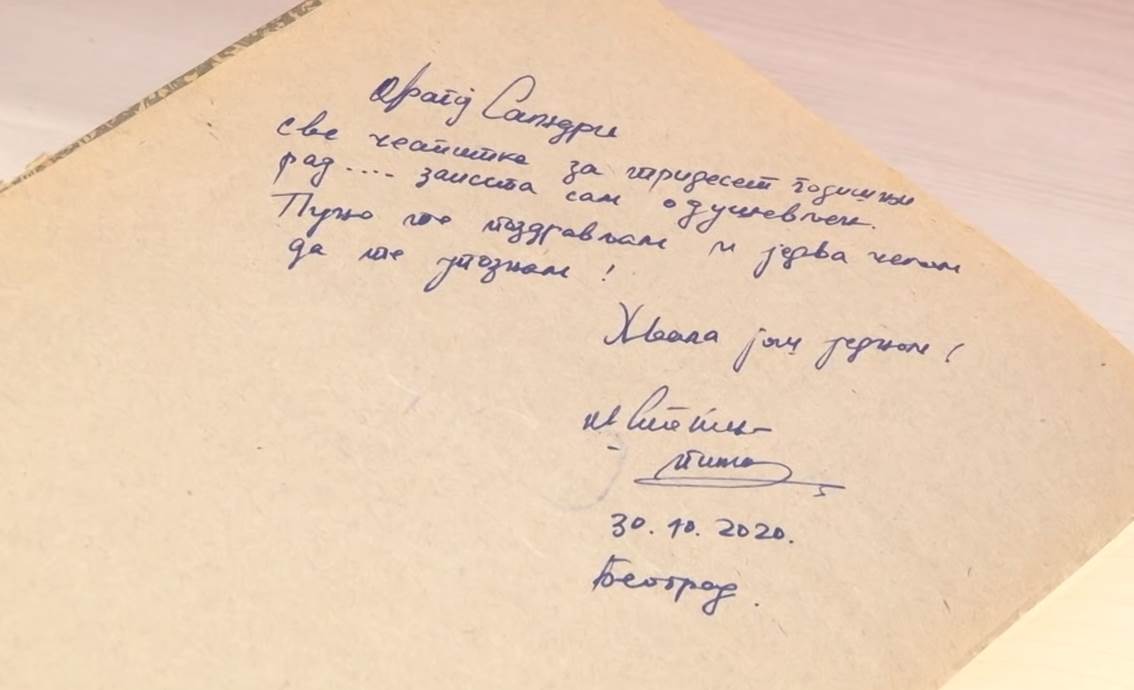 Драгој Сандри
све честитке за тридесет годишњи
рад .... заиста сам одушевљен.
Пуно те поздрављам и једва чекам
да те упознам !
Хвала још једном !
30. 10. 2020.
Београд.